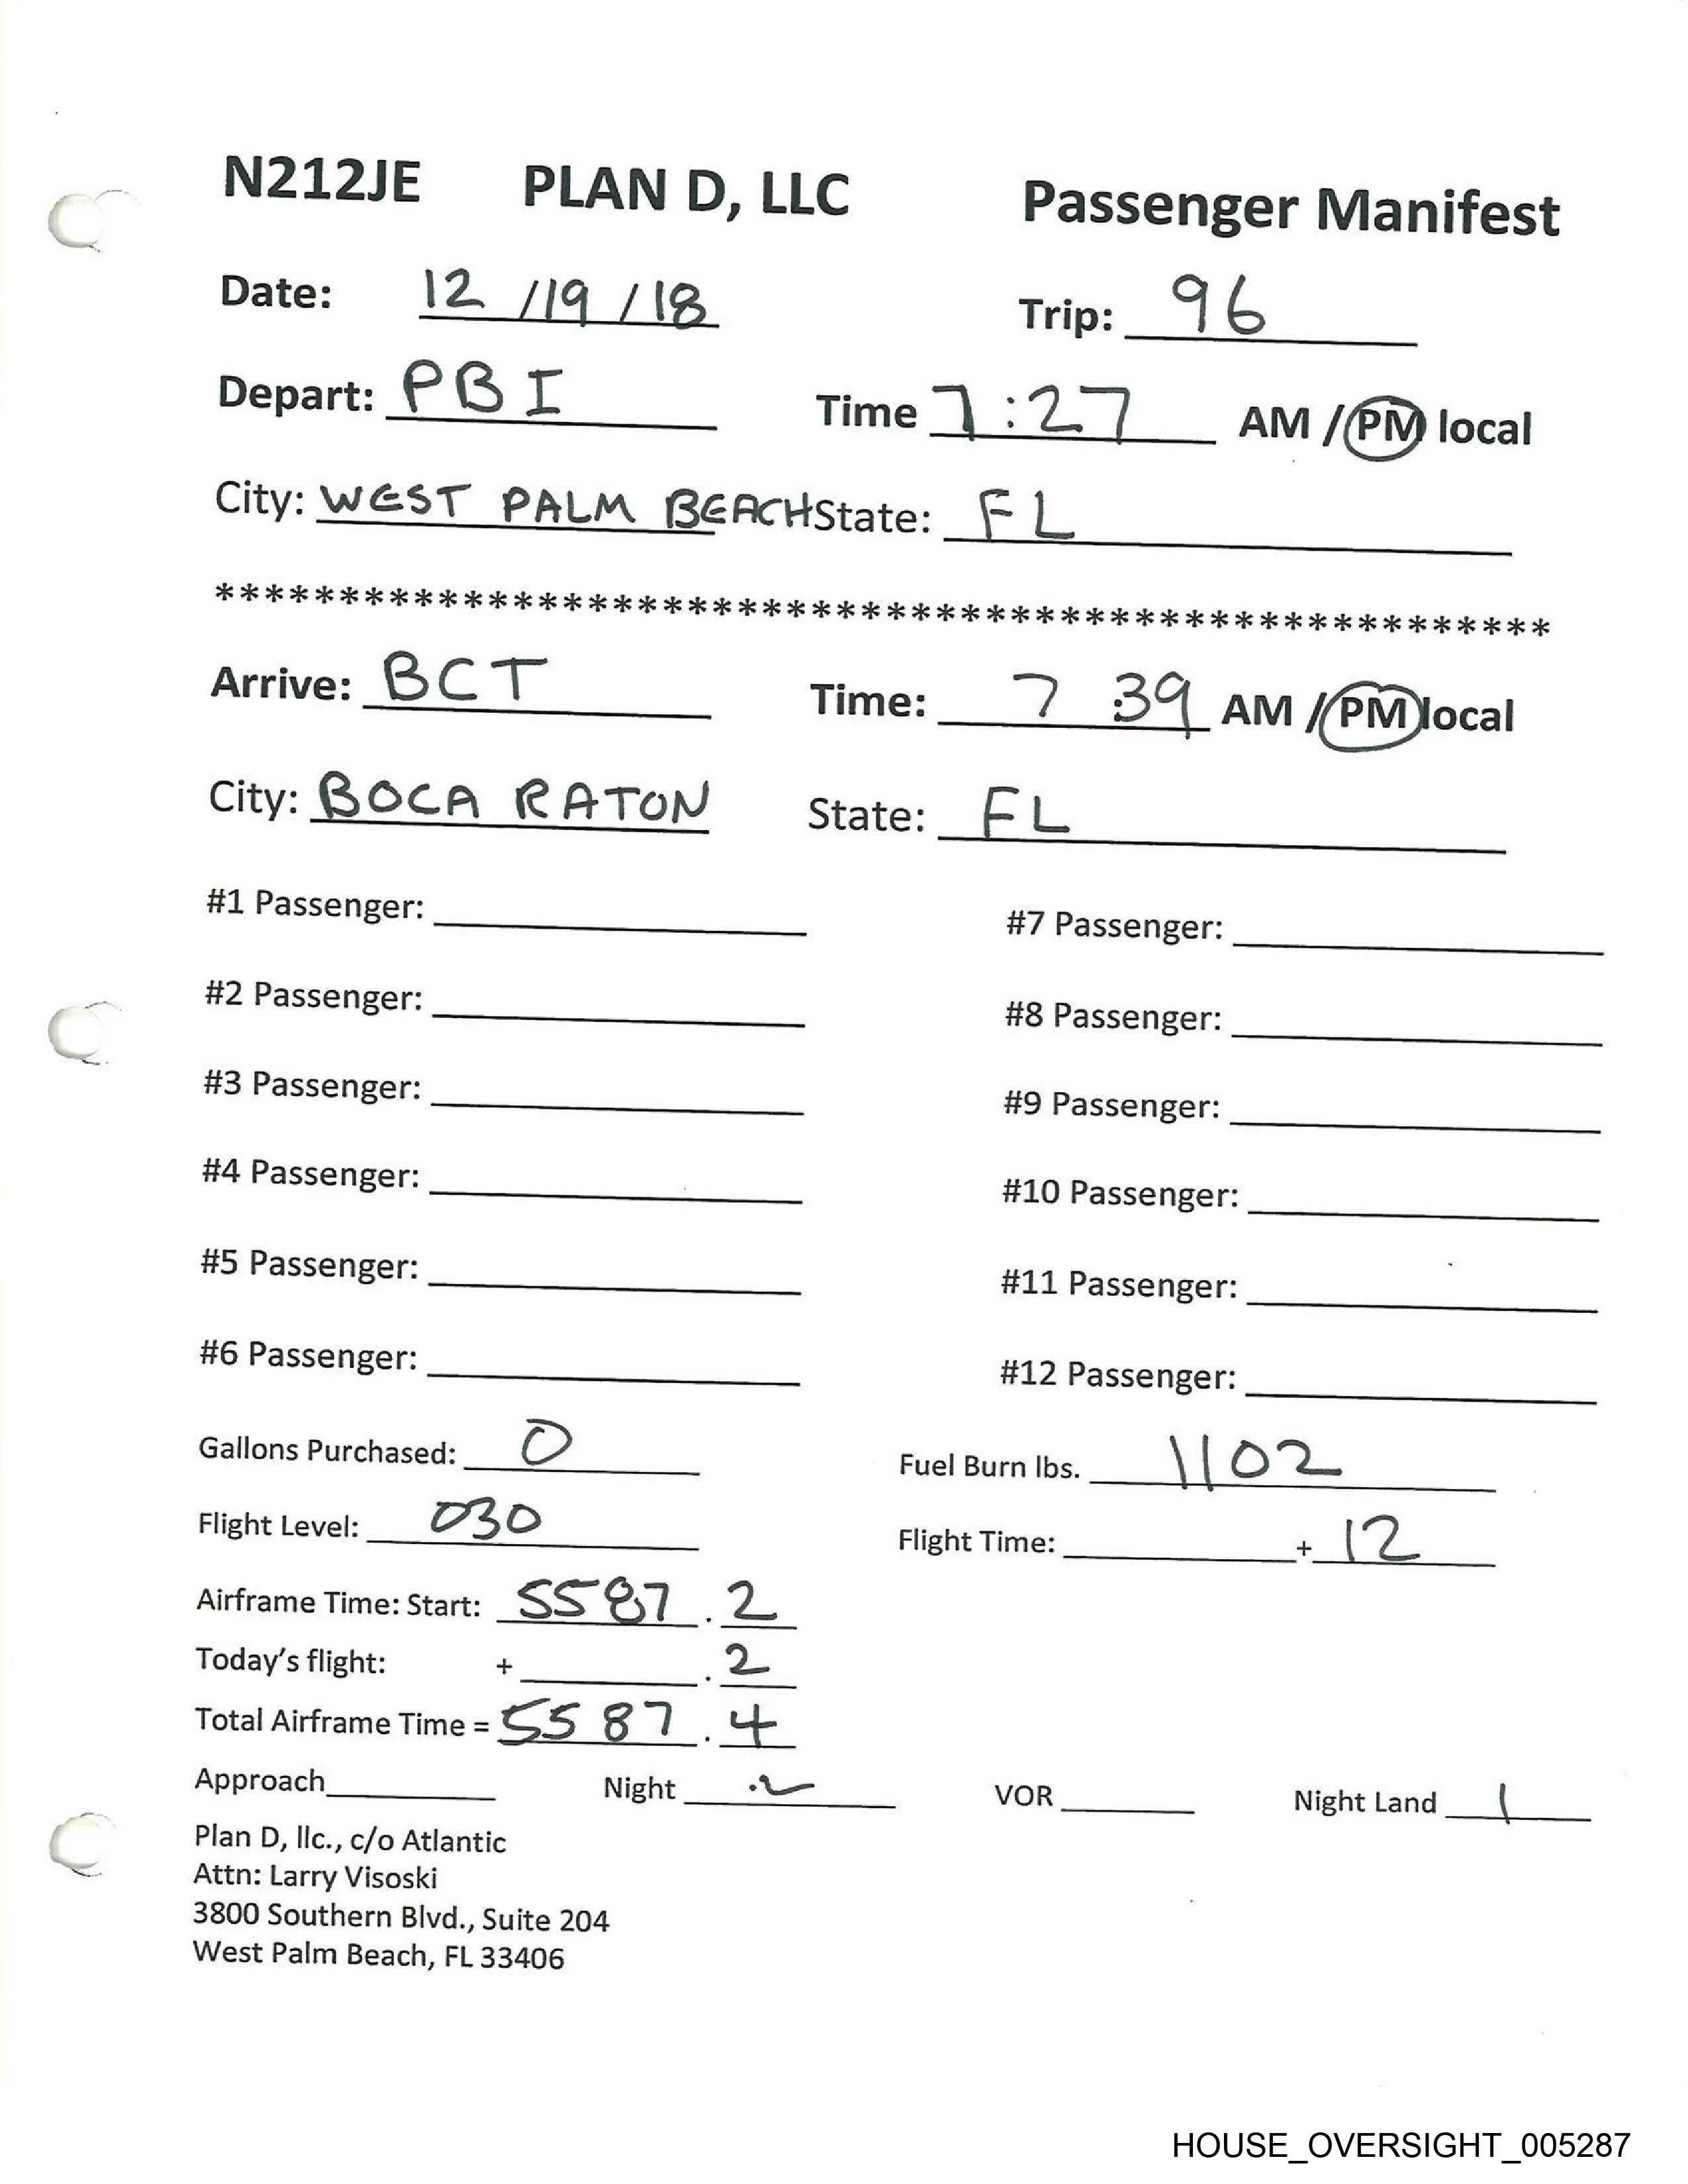 N212JE PLAN D, LLC Passenger Manifest
Date: 12 /19 /18 Trip: 96
Depart: PBI Time 7:27 AM / PM local
City: WEST PALM BEACH State: FL
******************************************************
Arrive: BCT Time: 7 :39 AM / PM local
City: BOCA RATON State: FL
#1 Passenger: #7 Passenger:
#2 Passenger: #8 Passenger:
#3 Passenger: #9 Passenger:
#4 Passenger: #10 Passenger:
#5 Passenger: #11 Passenger:
#6 Passenger: #12 Passenger:
Gallons Purchased: 0 Fuel Burn lbs. 1102
Flight Level: 030 Flight Time: + 12
Airframe Time: Start: 5587 . 2
Today's flight: + . 2
Total Airframe Time = 5587 . 4
Approach Night .2 VOR Night Land 1
Plan D, llc., c/o Atlantic
Attn: Larry Visoski
3800 Southern Blvd., Suite 204
West Palm Beach, FL 33406
HOUSE_OVERSIGHT_005287